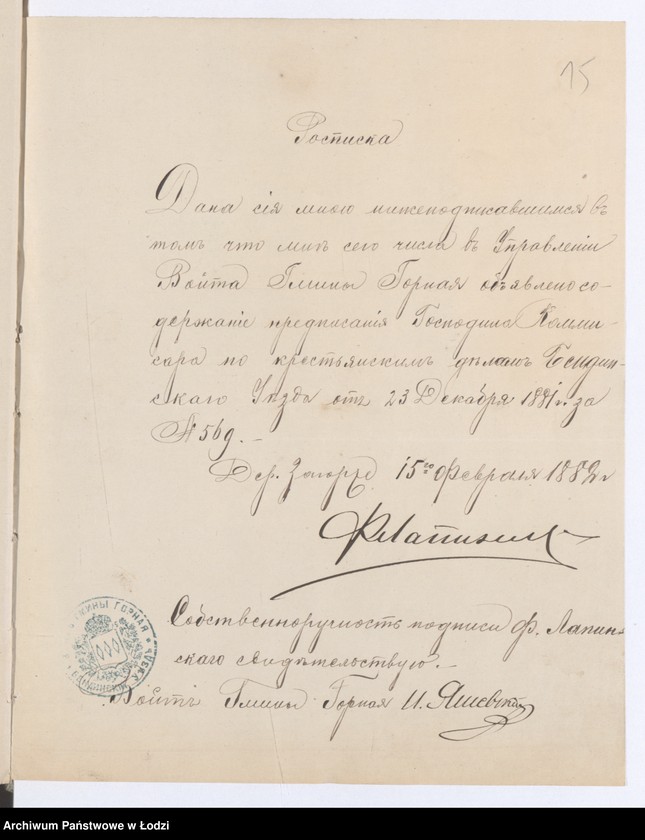 15
Росписка
Дана сія мною нижеподписавшимся въ
томъ что мнѣ сего числа въ Управленіи
Войта Гмины Горная объявлено со-
держаніе предписанія Господина Комми-
сара по крестьянскимъ дѣламъ Бендин-
скаго Уѣзда отъ 23 Декабря 1881 г. за
№ 569. –
Дер. 15го Февраля 1882 г
Собственноручность подписи Ф. Лапин-
скаго свидѣтельствую. –
Войтъ Гмины Горная И.
ГМИНЫ ГОРНАЯ
Archiwum Państwowe w Łodzi